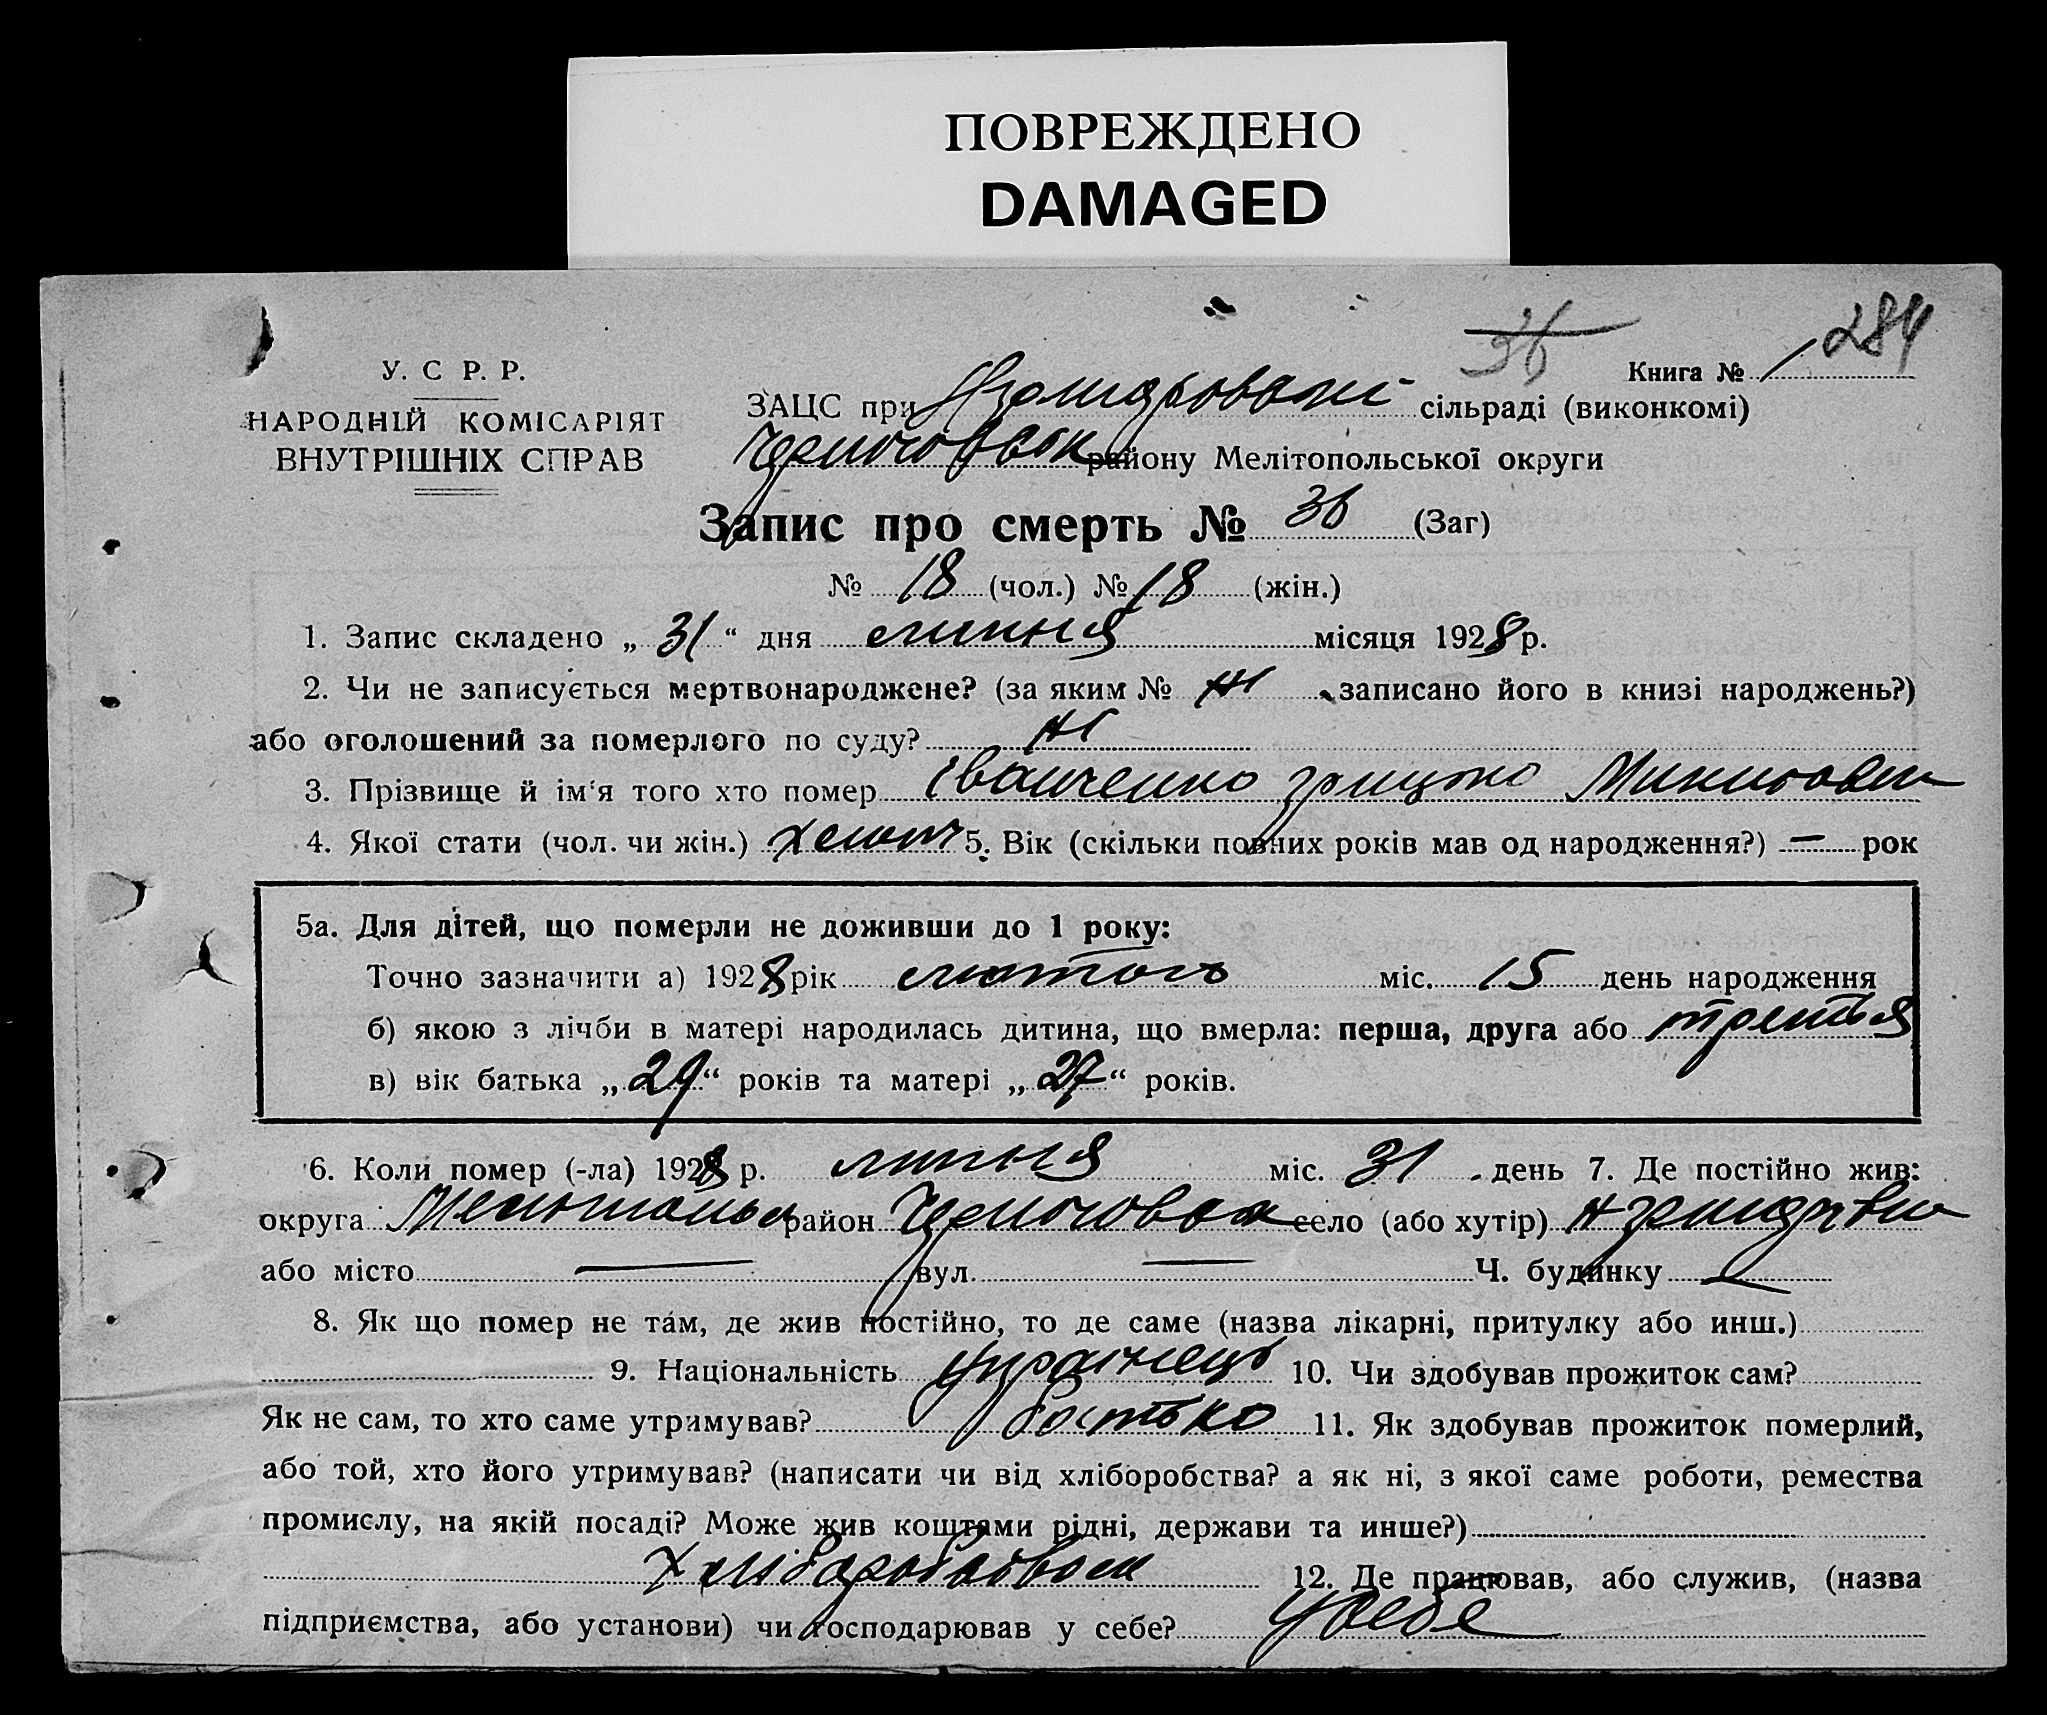 ПОВРЕЖДЕНО
DAMAGED
36 284
Книга № 1
У. С Р. Р.
НАРОДНІЙ КОМІСАРІЯТ
ВНУТРІШНІХ СПРАВ
ЗАЦС при сільраді (виконкомі)
району Мелітопольської округи
Запис про смерть № 36 (Заг)
№ 18 (чол.) № 18 (жін.)
1. Запис складено „ 31 “ дня липня місяця 1928 р.
2. Чи не записується мертвонароджене? (за яким № ні записано його в книзі народжень?)
або оголошений за померлого по суду? ні
3. Прізвище й ім‘я того хто помер Іванченко Грицько
4. Якої стати (чол. чи жін.) хлопч 5. Вік (скільки повних років мав од народження?) — рок
5а. Для дітей, що померли не доживши до 1 року:
Точно зазначити а) 1928 рік лютого міс. 15 день народження
б) якою з лічби в матері народилась дитина, що вмерла: перша, друга або третья
в) вік батька „ 29 “ років та матері „ 27 “ років.
6. Коли помер (-ла) 1928 р. липня міс. 31 день 7. Де постійно жив:
округа район село (або хутір)
або місто — вул. — Ч. будинку —
8. Як що помер не там, де жив постійно, то де саме (назва лікарні, притулку або инш.)
9. Національність українець 10. Чи здобував прожиток сам?
Як не сам, то хто саме утримував? батько 11. Як здобував прожиток померлий,
або той, хто його утримував? (написати чи від хліборобства? а як ні, з якої саме роботи, ремества
промислу, на якій посаді? Може жив коштами рідні, держави та инше?)
12. Де працював, або служив, (назва
підприємства, або установи) чи господарював у себе? у себе